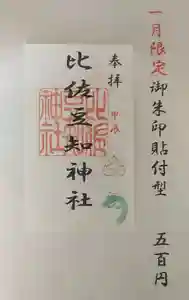 一月限定御朱印貼付型　五百円
奉拝
甲辰
比佐豆知神社